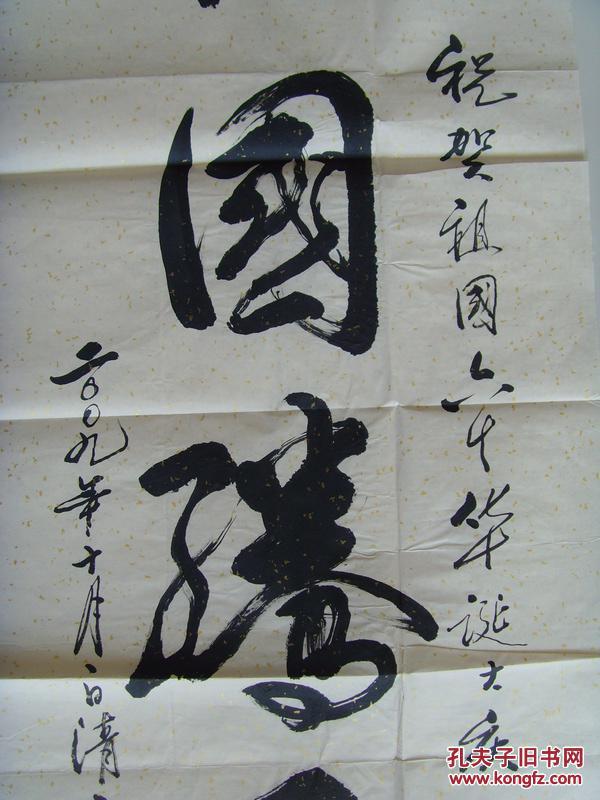 祝贺祖國六十华诞大庆
國腾
二〇〇九年十月一日清
孔夫子旧书网
www.kongfz.com